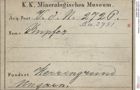 K. K. Mineralogisches Museum.
Acq. Post. C. d. N. 2726.
Aa. 2781
Kupfer
Fundort Herrengrund
Ungarn.